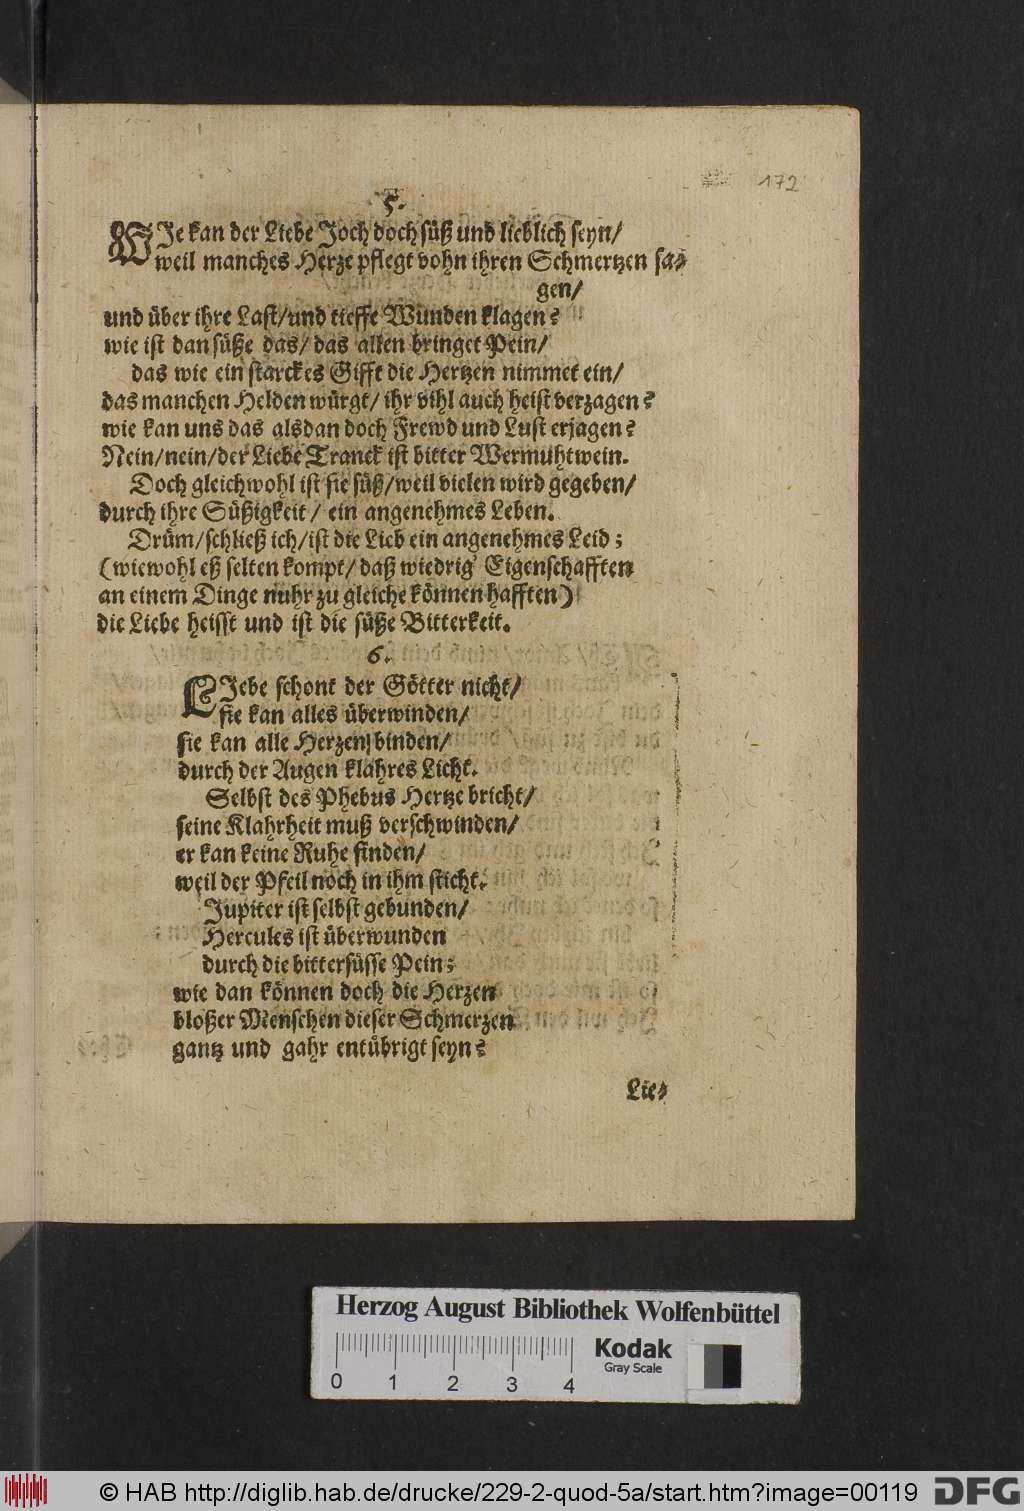 172
5.
WJe kan der Liebe Joch doch süß und lieblich seyn/
weil manches Herze pflegt vohn ihren Schmertzen sa-
gen/
und über ihre Last/und tieffe Wunden klagen?
wie ist dan süße das/ das allen bringet Pein/
das wie ein starckes Gifft die Hertzen nimmet ein/
das manchen Helden würgt/ ihr vihl auch heist verzagen?
wie kan uns das alsdan doch Frewd und Lust erjagen?
Nein/nein/der Liebe Tranck ist bitter Wermuhtwein.
Doch gleichwohl ist sie süß/weil vielen wird gegeben/
durch ihre Süßigkeit/ ein angenehmes Leben.
Drüm/schließ ich/ist die Lieb ein angenehmes Leid;
(wiewohl eß selten kompt/ daß wiedrig' Eigenschafften
an einem Dinge nuhr zu gleiche können hafften)
die Liebe heisst und ist die süße Bitterkeit.
6.
LJebe schont der Götter nicht/
sie kan alles überwinden/
sie kan alle Herzen binden/
durch der Augen klahres Licht.
Selbst des Phebus Hertze bricht/
seine Klahrheit muß verschwinden/
er kan keine Ruhe finden/
weil der Pfeil noch in ihm sticht.
Jupiter ist selbst gebunden/
Hercules ist überwunden
durch die bittersüsse Pein;
wie dan können doch die Herzen
bloßer Menschen dieser Schmerzen
gantz und gahr entübrigt seyn?
Lie-
Herzog August Bibliothek Wolfenbüttel
Kodak
Gray Scale
0 1 2 3 4
© HAB http://diglib.hab.de/drucke/229-2-quod-5a/start.htm?image=00119
DFG